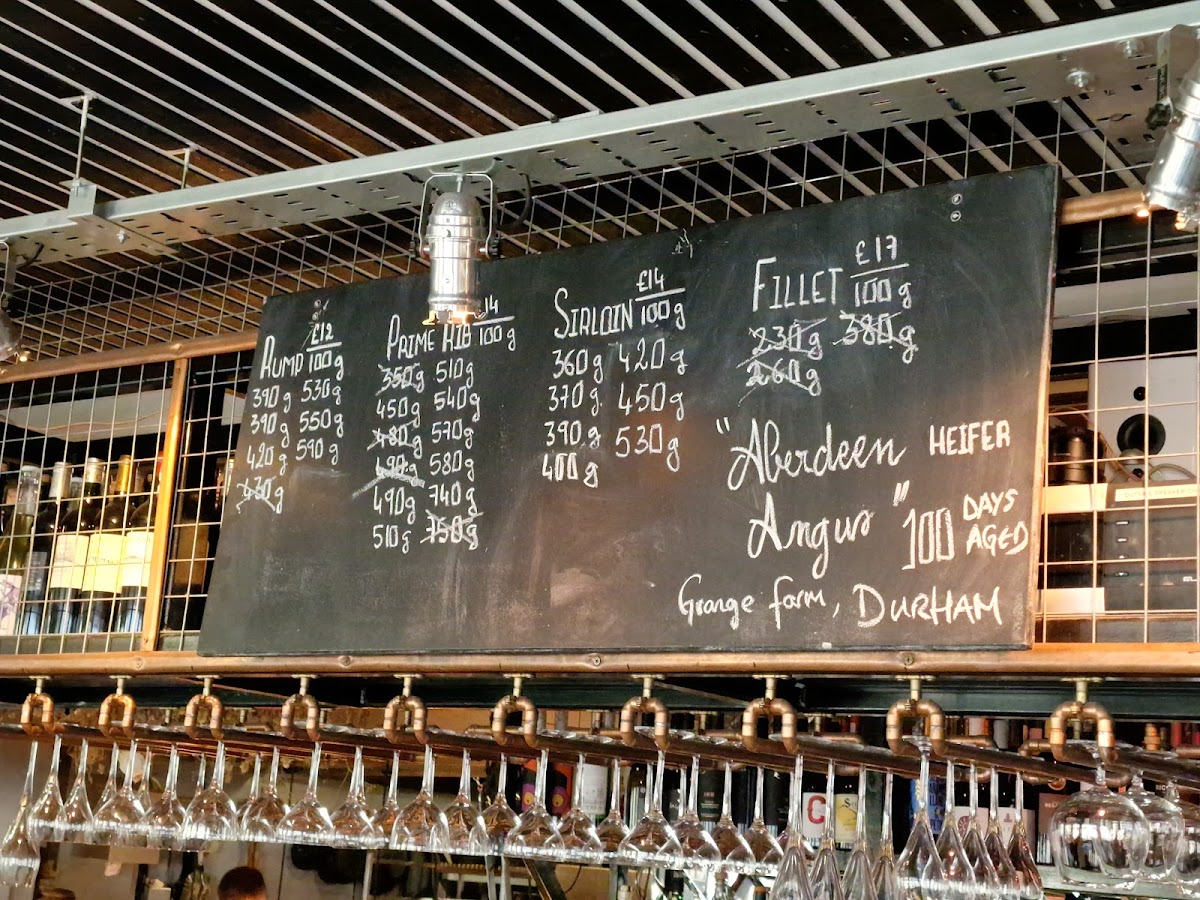 RUMP £12/100g
390g 530g
390g 550g
420g 590g
430g
PRIME RIB 14/100g
350g 510g
450g 540g
480g 570g
490g 580g
490g 740g
510g 750g
SIRLOIN £14/100g
360g 420g
370g 450g
390g 530g
400g
FILLET £17/100g
230g 380g
260g
"Aberdeen HEIFER
Angus" 100 DAYS AGED
Grange farm, DURHAM